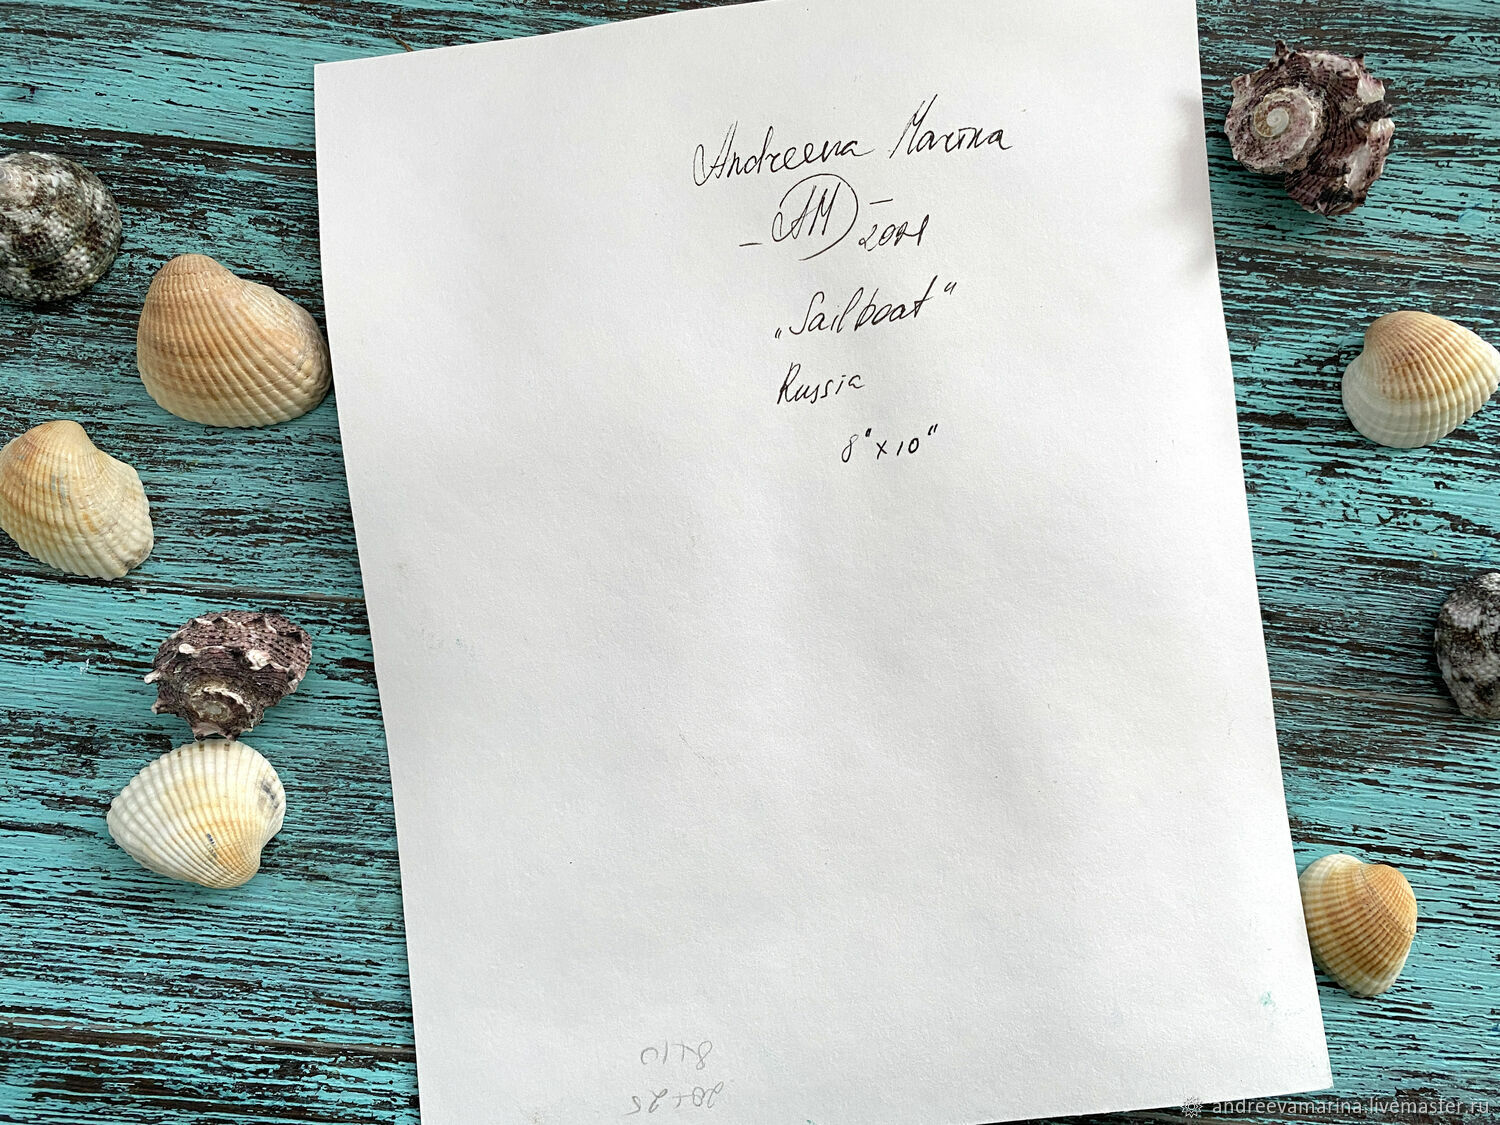 Andreeva Marina
- AM -
2021
„Sailboat"
Russia
8"x10"
8x10
20x25
andreevamarina.livemaster.ru